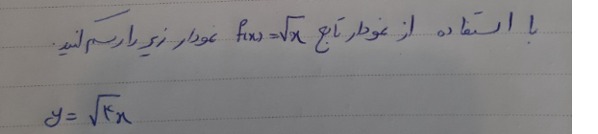 با استفاده از نمودار تابع f(x)=√x نمودار زیر را رسم کنید.
y=√۴x